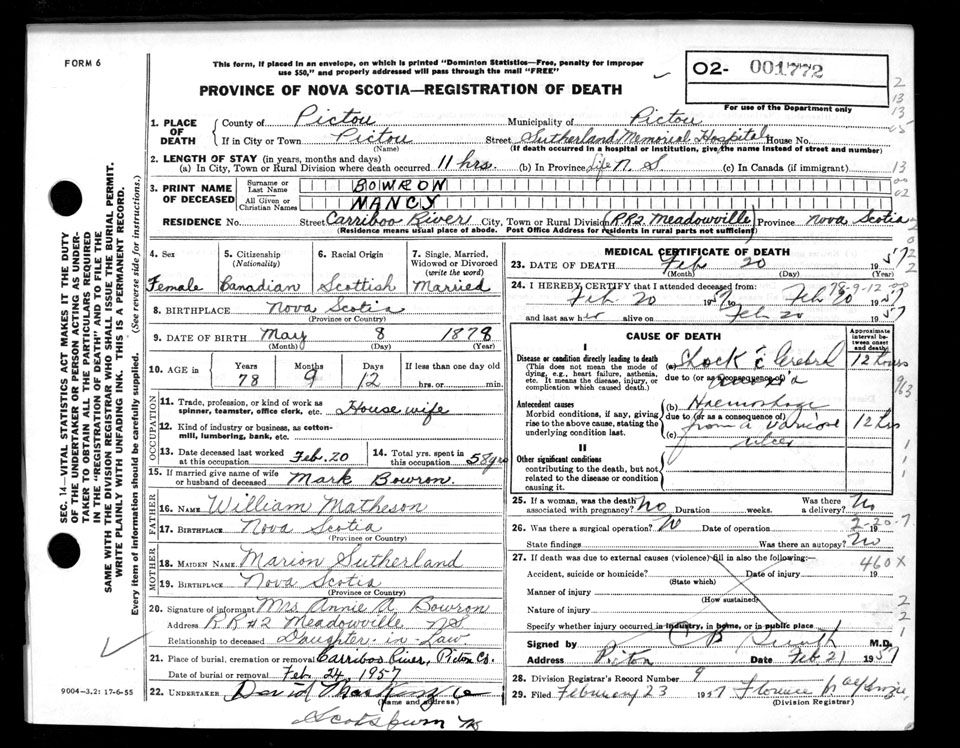 FORM 6
This form, if placed in an envelope, on which is printed "Dominion Statistics—Free, penalty for improper
use $50," and properly addressed will pass through the mail "FREE"
O2- 001772
For use of the Department only
PROVINCE OF NOVA SCOTIA—REGISTRATION OF DEATH
1. PLACE OF DEATH County of Pictou Municipality of Pictou
If in City or Town Pictou Street Sutherland Memorial Hospital House No.
(Name) (If death occurred in a hospital or institution, give the name instead of street and number)
2. LENGTH OF STAY (in years, months and days)
(a) In City, Town or Rural Division where death occurred 11 hrs. (b) In Province Life N S (c) In Canada (if immigrant)
3. PRINT NAME OF DECEASED
Surname or Last Name BOWRON
All Given or Christian Names NANCY
RESIDENCE No. Street Carriboo River City, Town or Rural Division RR2 Meadowville Province Nova Scotia
(Residence means usual place of abode. Post Office Address for residents in rural parts not sufficient)
4. Sex 5. Citizenship (Nationality) 6. Racial Origin 7. Single, Married, Widowed or Divorced (write the word)
Female Canadian Scottish Married
8. BIRTHPLACE Nova Scotia
(Province or Country)
9. DATE OF BIRTH May 8 1878
(Month) (Day) (Year)
10. AGE in Years Months Days If less than one day old
78 9 12 hrs. or min.
OCCUPATION
11. Trade, profession, or kind of work as spinner, teamster, office clerk, etc. House wife
12. Kind of industry or business, as cotton-mill, lumbering, bank, etc.
13. Date deceased last worked at this occupation Feb. 20 14. Total yrs. spent in this occupation 58 yrs
15. If married give name of wife or husband of deceased Mark Bowron
FATHER
16. NAME William Matheson
17. BIRTHPLACE Nova Scotia
(Province or Country)
MOTHER
18. MAIDEN NAME Marion Sutherland
19. BIRTHPLACE Nova Scotia
(Province or Country)
20. Signature of informant Mrs Annie A Bowron
Address RR#2 Meadowville NS
Relationship to deceased Daughter-in-Law
21. Place of burial, cremation or removal Carriboo River, Pictou Co.
Date of burial or removal Feb. 24, 1957
22. UNDERTAKER David MacKenzie
(Name and address)
Scotsburn NS
MEDICAL CERTIFICATE OF DEATH
23. DATE OF DEATH Feb 20 1957
(Month) (Day) (Year)
24. I HEREBY CERTIFY that I attended deceased from:
Feb 20 1957 to Feb 20 1957
and last saw her alive on Feb 20 1957
78-9-12
CAUSE OF DEATH
Approximate interval between onset and death
I
Disease or condition directly leading to death
(This does not mean the mode of dying, e.g., heart failure, asthenia, etc. It means the disease, injury, or complication which caused death.)
(a) Shock c̄ Cerebral 12 hours
due to (or as a consequence of)
Antecedent causes
Morbid conditions, if any, giving rise to the above cause, stating the underlying condition last.
(b) Haemorrhage
due to (or as a consequence of)
from a varicose 12 hrs
(c) ulcer
II
Other significant conditions
contributing to the death, but not related to the disease or condition causing it.
25. If a woman, was the death associated with pregnancy? No Duration weeks. Was there a delivery? No
26. Was there a surgical operation? No Date of operation 19
2-20-7
State findings Was there an autopsy? No
27. If death was due to external causes (violence) fill in also the following:—
460X
Accident, suicide or homicide? Date of injury 19
(State which)
Manner of injury
(How sustained)
Nature of injury
Specify whether injury occurred in industry, in home, or in public place
Signed by M.D.
Address Pictou Date Feb 21 1957
28. Division Registrar's Record Number 9
29. Filed February 23 1957 Florence MacKenzie
(Division Registrar)
SEC. 14—VITAL STATISTICS ACT MAKES IT THE DUTY
OF THE UNDERTAKER OR PERSON ACTING AS UNDER-
TAKER TO OBTAIN ALL THE PARTICULARS REQUIRED
IN THE "REGISTRATION OF DEATH" AND TO FILE THE
SAME WITH THE DIVISION REGISTRAR WHO SHALL ISSUE THE BURIAL PERMIT.
WRITE PLAINLY WITH UNFADING INK. THIS IS A PERMANENT RECORD.
Every item of information should be carefully supplied. (See reverse side for instructions.)
9004—3.2: 17-6-55